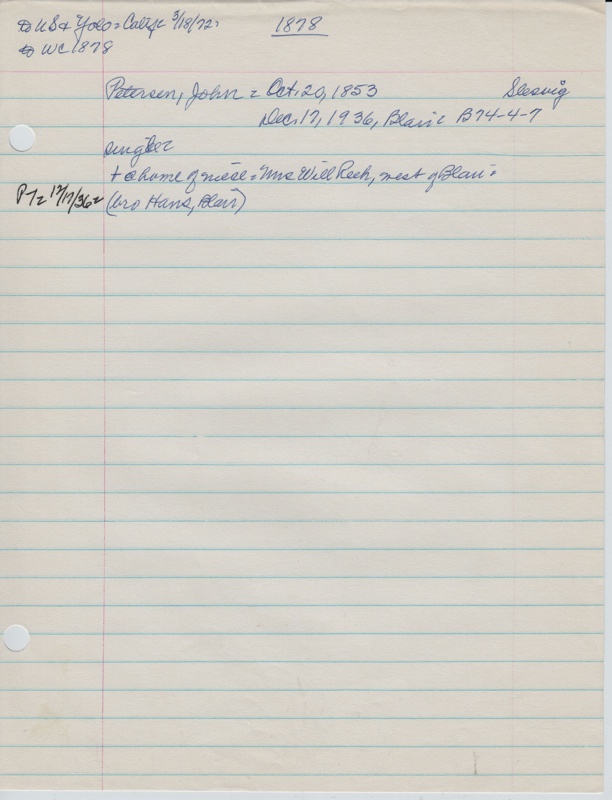 to US & Yolo = Calif 3/18/72 =
1878
to WC 1878
Petersen, John = Oct. 20, 1853 Slesvig
Dec. 17, 1936, Blair = B74-4-7
single =
+ @ home of niese = Mrs Will Rech, west of Blair =
PT = 12/17/36 = (bro Hans, Blair)